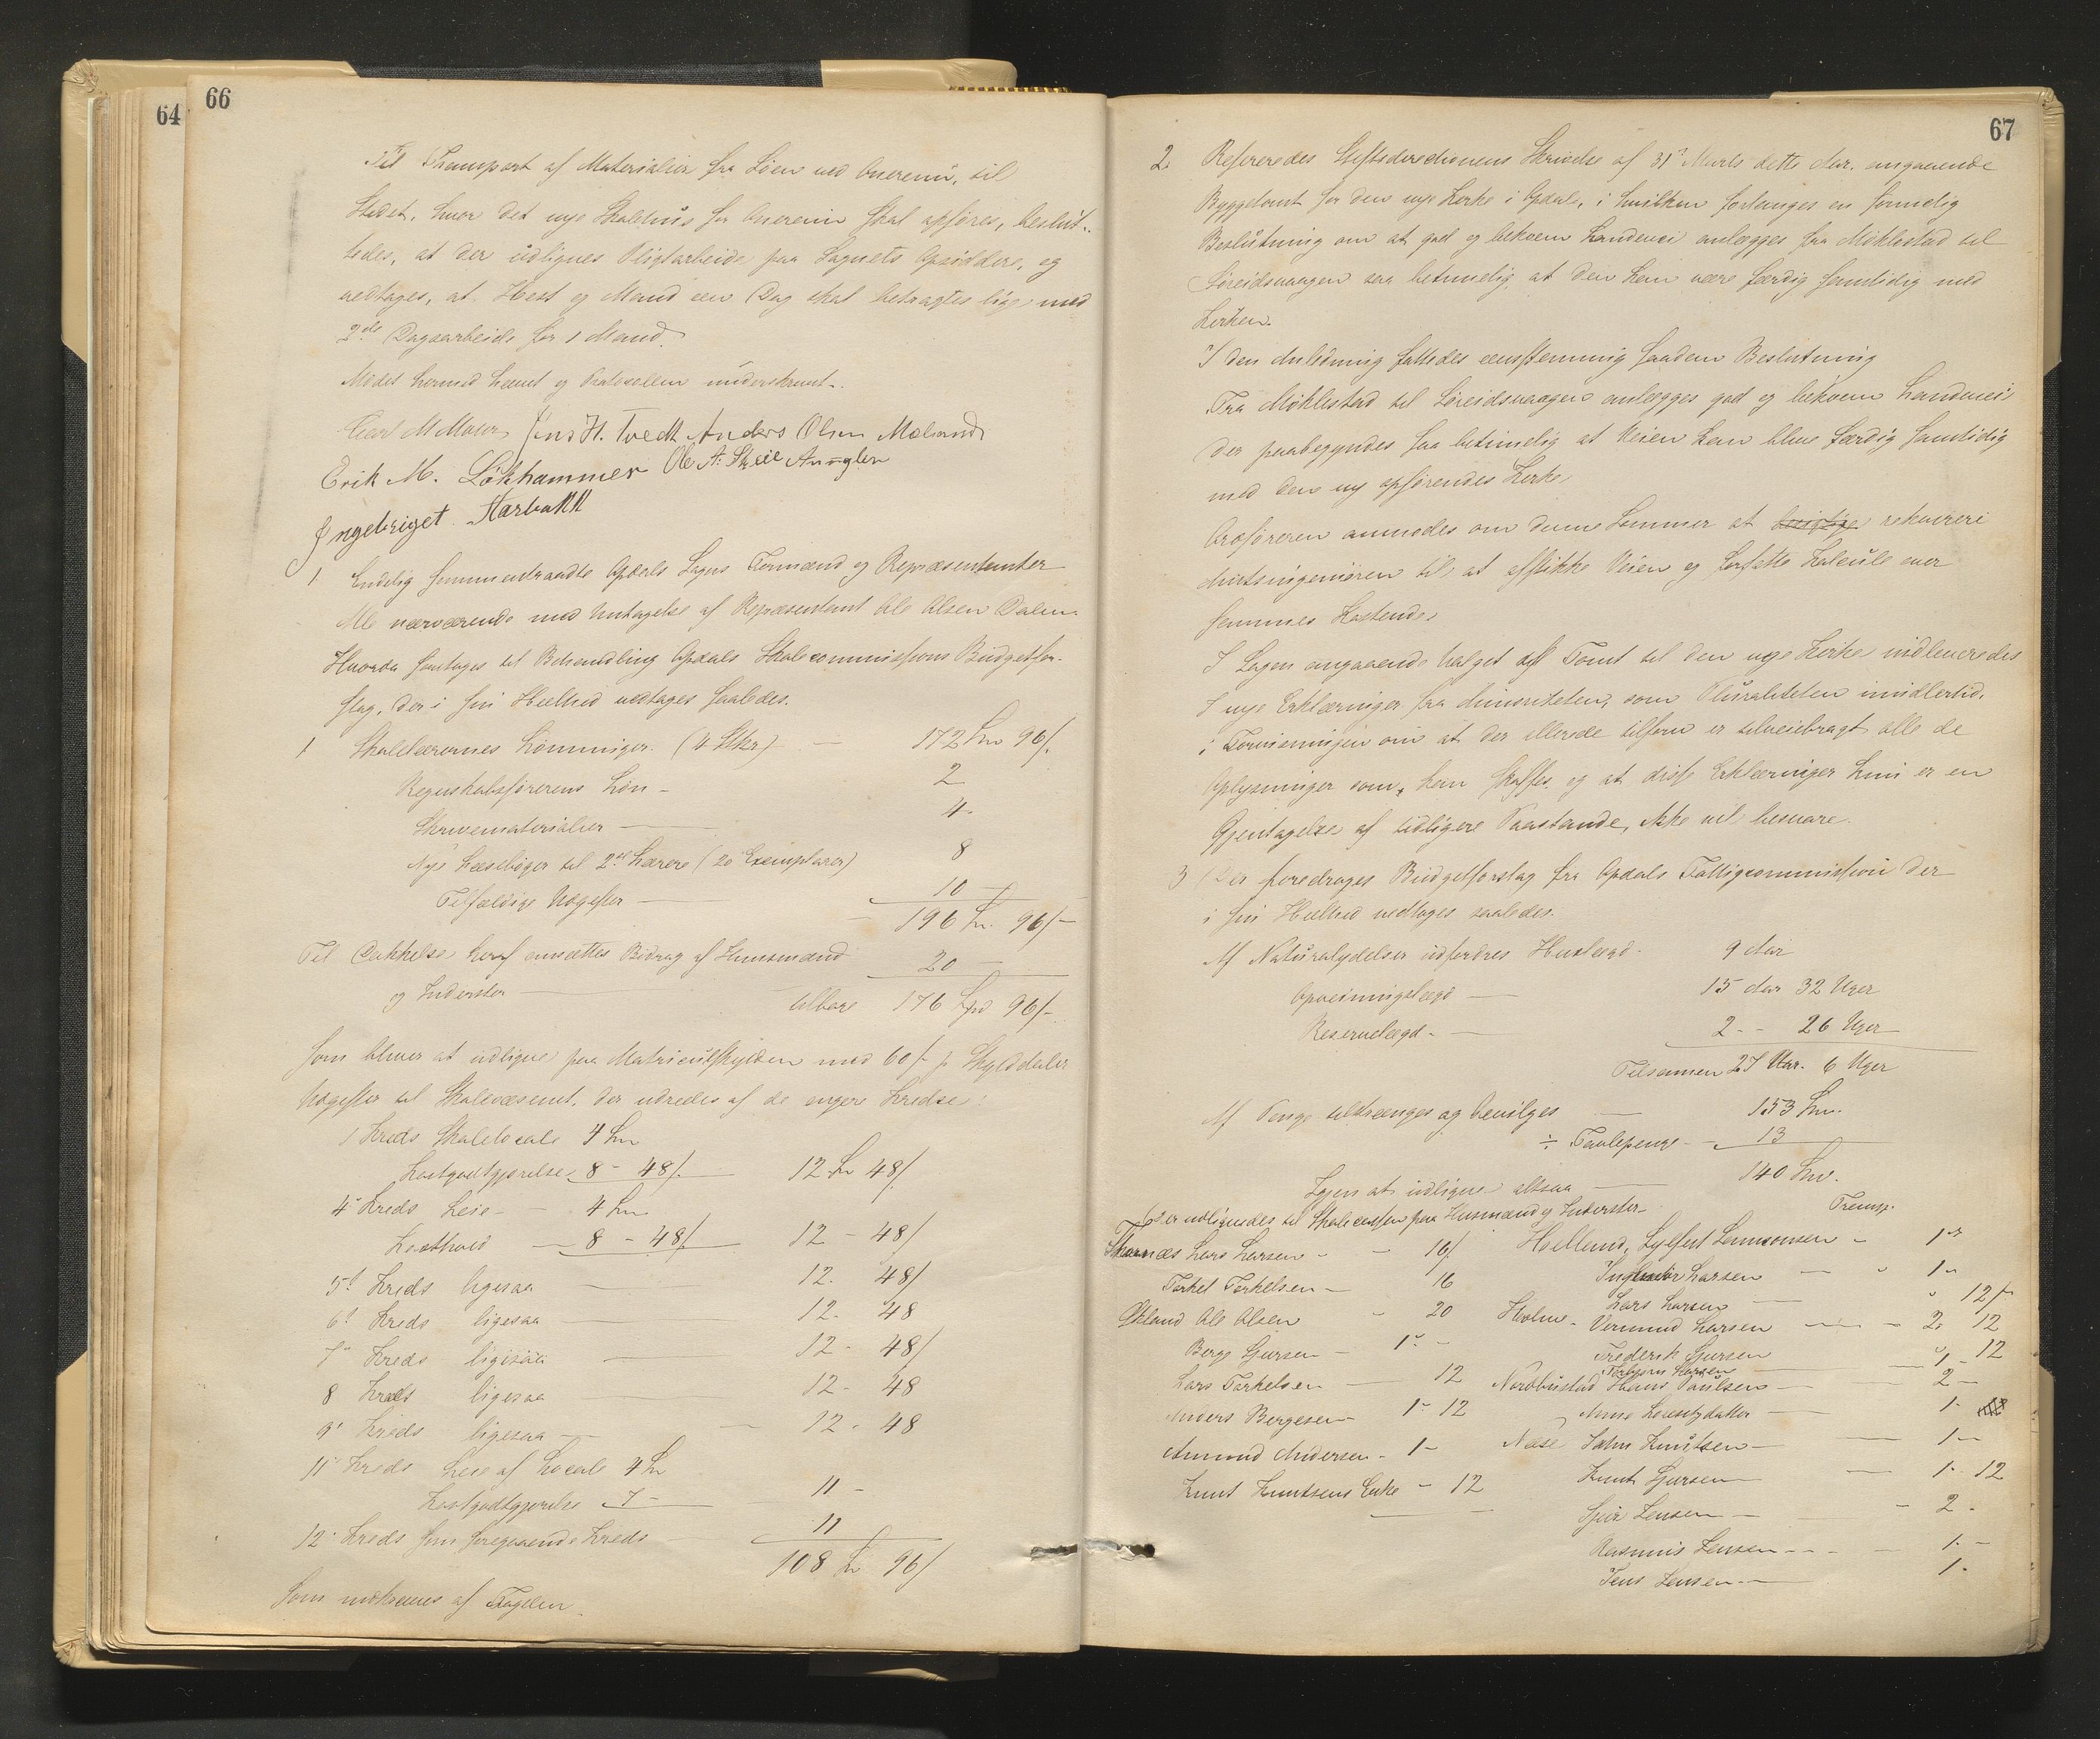 64
66
Til Transport af Materialier fra Søen ved Onereim, til
Stedet, hvor det nye Skolehus for Onereim skal opføres, beslut-
tedes, at der udlignes Pligtarbeide paa Sognets Opsiddere, og
vedtages, at Hest og Mand een Dag skal betragtes lige med
2de Dagsarbeide for 1 Mand.
Mødet hermed hævet og Protocollen underskrevet.
Jens H. Tvedt Anders Olsen Møland
Erik M. Løkhammer Ole A. Skeie
Ingebrigt
1 Endelig sammentraadte Opdals Sogns Formænd og Repræsentanter
Alle nærværende med Undtagelse af Repræsentant Ole Olsen Dalen.
Hvorda foretages til Behandling Opdals Skolecommissions Budgetfor-
slag, der i sin Helhed vedtages saaledes.
1 Skolelærernes Lønninger. (4 Stkr) — 172 Spd 96/
Regnskabsførerens Løn - 2
Skrivematerialier — 4-
Nye Læsebøger til 2de Lærere (20 Exemplarer) 8
Tilfældige Udgifter — 10 -
196 Spd 96/-
Til Dækkelse heraf ansættes Bidrag af Huusmænd
og Inderster — 20 -
tilbage 176 Spd 96/-
Som bliver at udligne paa Matriculskylden med 60/- pr Skylddaler
Udgifter til Skolevæsenet, der udredes af de engere Kredse:
1 Kreds Skolelocale 4 Spd
Kostgodtgjørelse 8 - 48/. — 12 Spd 48/
4de Kreds Leie - - 4 Spd
Kosthold — 8 - 48/ — 12 - 48/
5te Kreds ligesaa — 12. 48/
6te Kreds ligesaa — 12. 48
7de Kreds ligesaa — 12 - 48/
8 Kreds ligesaa — 12 - 48
9de Kreds ligesaa — 12 - 48
11te Kreds Leie af Locale 4 Spd
Kostgodtgjørelse 7 - — 11 -
12te Kreds som foregaaende Kreds 11
108 Spd 96/
Som indkræves af Fogden
67
2. Refereredes Stiftsdirectionens Skrivelse af 31te Marts dette Aar, angaaende
Byggetomt for den nye Kirke i Opdal, i hvilken forlanges en formelig
Beslutning om at god og bekvem Landevei anlægges fra Møklestad til
Søreidsvaagen saa betimelig at den kan være færdig samtidig med
Kirken.
I den Anledning fattedes eenstemmig saadan Beslutning
Fra Møklestad til Søreidsvaagen anlægges god og bekvem Landevei
der paabegyndes saa betimelig at Veien kan blive færdig samtidig
med den ny opførendes Kirke
Ordføreren anmodes om denne Sommer at besigtige rekvirere
Amtsingeniøren til, at afstikke Veien og forfatte Kalcule over
sammes Kostende.
I Sagen angaaende Valget af Tomt til den nye Kirke indleveredes
7 nye Erklæringer fra Minoriteten, som Pluraliteten imidlertid,
i Formeningen om at der allerede tilforn er tilveiebragt alle de
Oplysninger som kan skaffes, og at disse Erklæringer kuns er en
Gjentagelse af tidligere Paastande, ikke vil besvare.
3 Der foredroges Budgetforslag fra Opdals Fattigcommission der
i sin Helhed vedtages saaledes.
Af Naturalydelser udfordres Huslægd. 9 Aar
Opveiningslægd — 15 Aar 32 Uger
Reservelægd. — 2 - - 26 Uger
Tilsamen 27 Aar. 6 Uger
Af Penge tiltrænges og bevilges — 153 Spd.
÷ Tavlepenge - 13
Igjen at udligne altsaa — 140 Spd.
Der udlignedes til Skolecassen paa Husmænd og Inderster -
Transp.
Skarnæs Lars Larsen - - 16/
Torkel Torkelsen - 16
Økland Ole Olsen - 20
Berge Sjursen - 1 -
Lars Torkelsen — 12
Anders Bergesen - 1 - 12
Amund Andersen - 1 -
Knut Knutsens Enke - 12
Helland, - 1 -
Larsen — 1 -
Lars Larsen — 12/
Holm - Vermund Larsen — 2. 12
Frederik Sjursen 12
Torbjørn Larsen — 1 -
Nordhustad Hans Paulsen — 2 -
Anne — 1 -
Næse John Knutsen — 1 -
Knut Sjursen — 1 - 12
Sjur Jensen — 2 -
Rasmus Jensen - - - 1. -
Jens Jensen — 1.